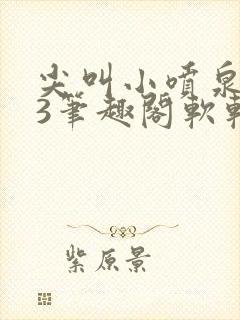 尖叫小喷泉
3笔趣阁软
紫原景